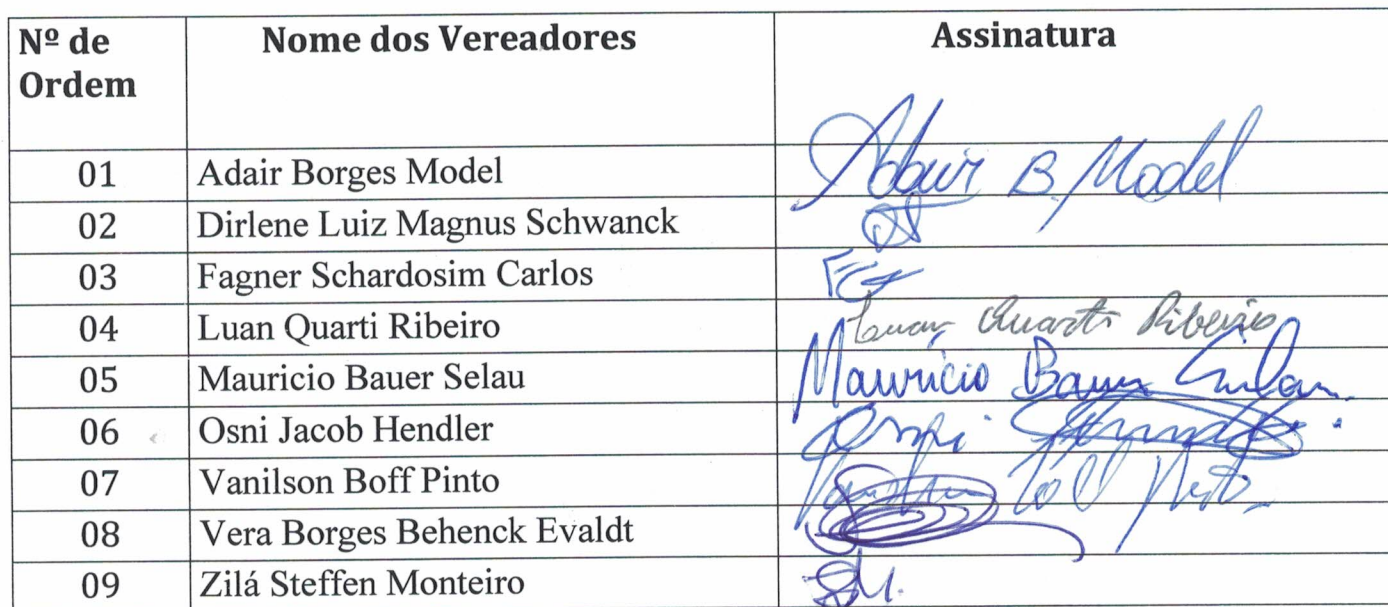 Nº de Ordem Nome dos Vereadores Assinatura
01 Adair Borges Model Adair B. Model
02 Dirlene Luiz Magnus Schwanck
03 Fagner Schardosim Carlos
04 Luan Quarti Ribeiro Luan Quarti Ribeiro
05 Mauricio Bauer Selau Mauricio Bauer Selau
06 Osni Jacob Hendler Osni
07 Vanilson Boff Pinto
08 Vera Borges Behenck Evaldt
09 Zilá Steffen Monteiro